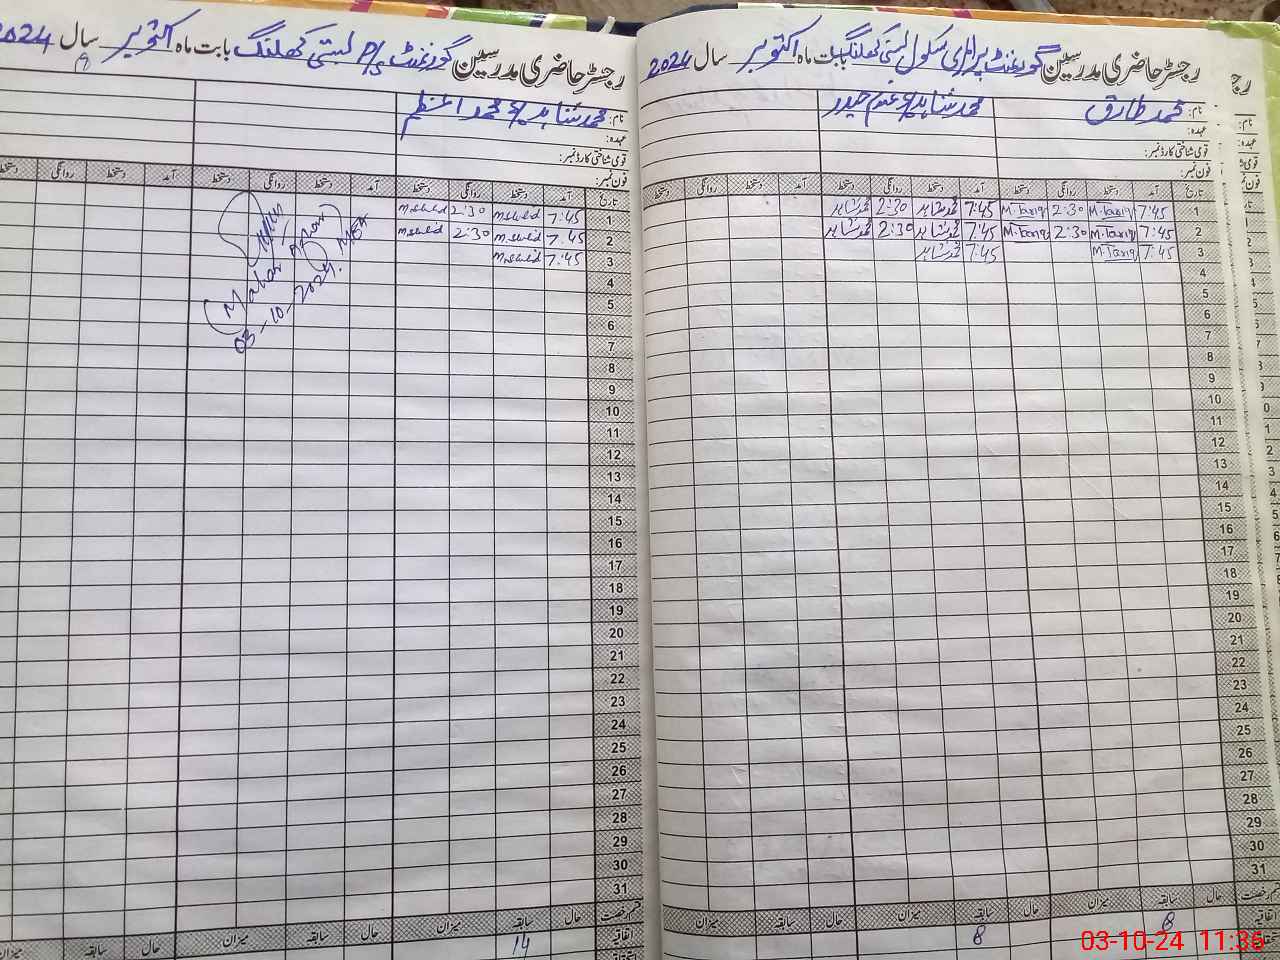 رجسٹر حاضری مدرسین گورنمنٹ پرائمری سکول بستی کھلنگ بابت ماہ اکتوبر سال 2024
نام: محمد طارق محمد شاہد
عہدہ:
قومی شناختی کارڈ نمبر:
فون نمبر:
تاریخ آمد دستخط روانگی دستخط آمد دستخط روانگی دستخط آمد دستخط روانگی دستخط
1 7:45 M.Tariq 2:30 M.Tariq 7:45 محمد شاہد 2:30 محمد شاہد
2 7:45 M.Tariq 2:30 M.Tariq 7:45 محمد شاہد 2:30 محمد شاہد
3 7:45 M.Tariq 7:45 محمد شاہد
4
5
6
7
8
9
10
11
12
13
14
15
16
17
18
19
20
21
22
23
24
25
26
27
28
29
30
31
قسم رخصت حال سابقہ میزان حال سابقہ میزان حال سابقہ میزان
اتفاقیہ 8 8
رجسٹر حاضری مدرسین گورنمنٹ P/S بستی کھلنگ بابت ماہ اکتوبر سال 2024
نام: محمد شاہد محمد اعظم
عہدہ:
قومی شناختی کارڈ نمبر:
فون نمبر:
تاریخ آمد دستخط روانگی دستخط آمد دستخط روانگی دستخط آمد دستخط روانگی دستخط
1 7:45 2:30
2 7:45 2:30
3 7:45
4
5
6
7
8
9
10
11
12
13
14
15
16
17
18
19
20
21
22
23
24
25
26
27
28
29
30
31
قسم رخصت حال سابقہ میزان حال سابقہ میزان حال سابقہ میزان
اتفاقیہ 14
03-10-2024
03-10-24 11:36